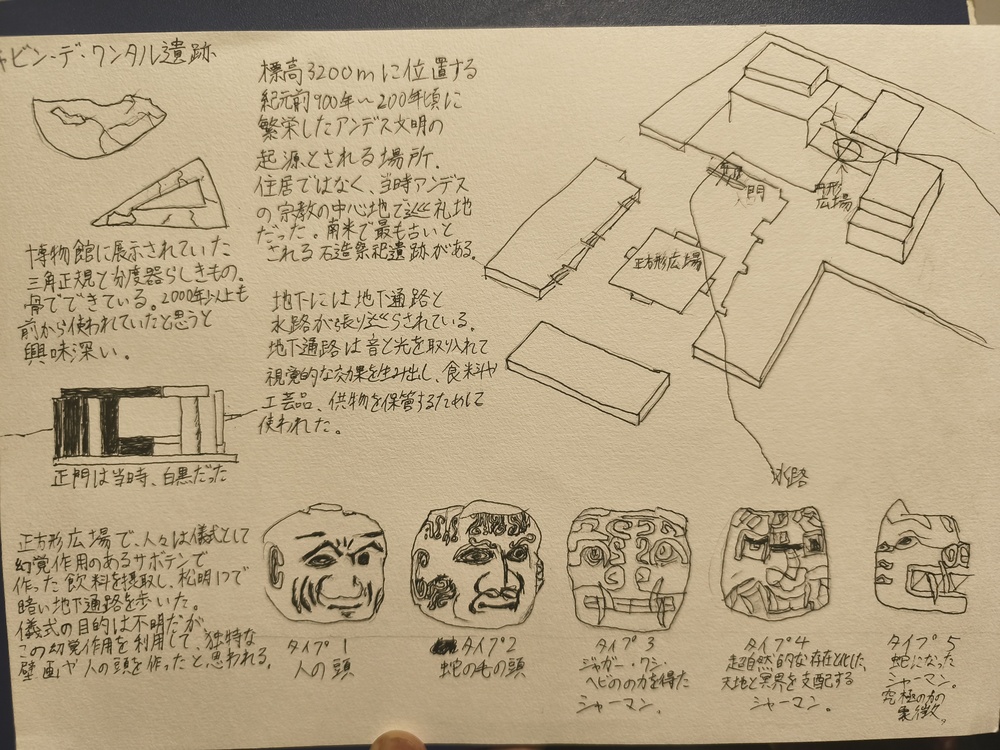 チャビン・デ・ワンタル遺跡
標高3200mに位置する
紀元前900年〜200年頃に
繁栄したアンデス文明の
起源とされる場所。
住居ではなく、当時アンデス
の宗教の中心地で巡礼地
だった。南米で最も古いと
される石造祭祀遺跡がある。
地下には地下通路と
水路が張り巡らされている。
地下通路は音と光を取り入れて
視覚的な効果を生み出し、食料や
工芸品、供物を保管するために
使われた。
博物館に展示されていた
三角定規と分度器らしきもの。
骨でできている。2000年以上も
前から使われていたと思うと
興味深い。
正門は当時、白黒だった
正門
円形
広場
正方形広場
水路
正方形広場で、人々は儀式として
幻覚作用のあるサボテンで
作った飲料を摂取し、松明1つで
暗い地下通路を歩いた。
儀式の目的は不明だが、
この幻覚作用を利用して、独特な
壁画や人の頭を作ったと思われる。
タイプ1
人の頭
タイプ2
蛇の毛の頭
タイプ3
ジャガー・ワシ・
ヘビのの力を得た
シャーマン。
タイプ4
超自然的な存在と化した、
天地と冥界を支配する
シャーマン。
タイプ5
蛇になった
シャーマン。
究極の力の
象徴。